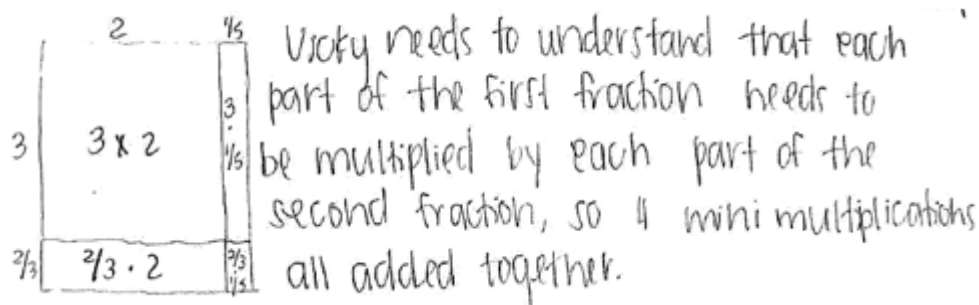 2 1/5
Vicky needs to understand that each
part of the first fraction needs to
be multiplied by each part of the
second fraction, so 4 mini multiplications
all added together.
3
3 x 2
3 · 1/5
2/3
2/3 · 2
2/3 · 1/5